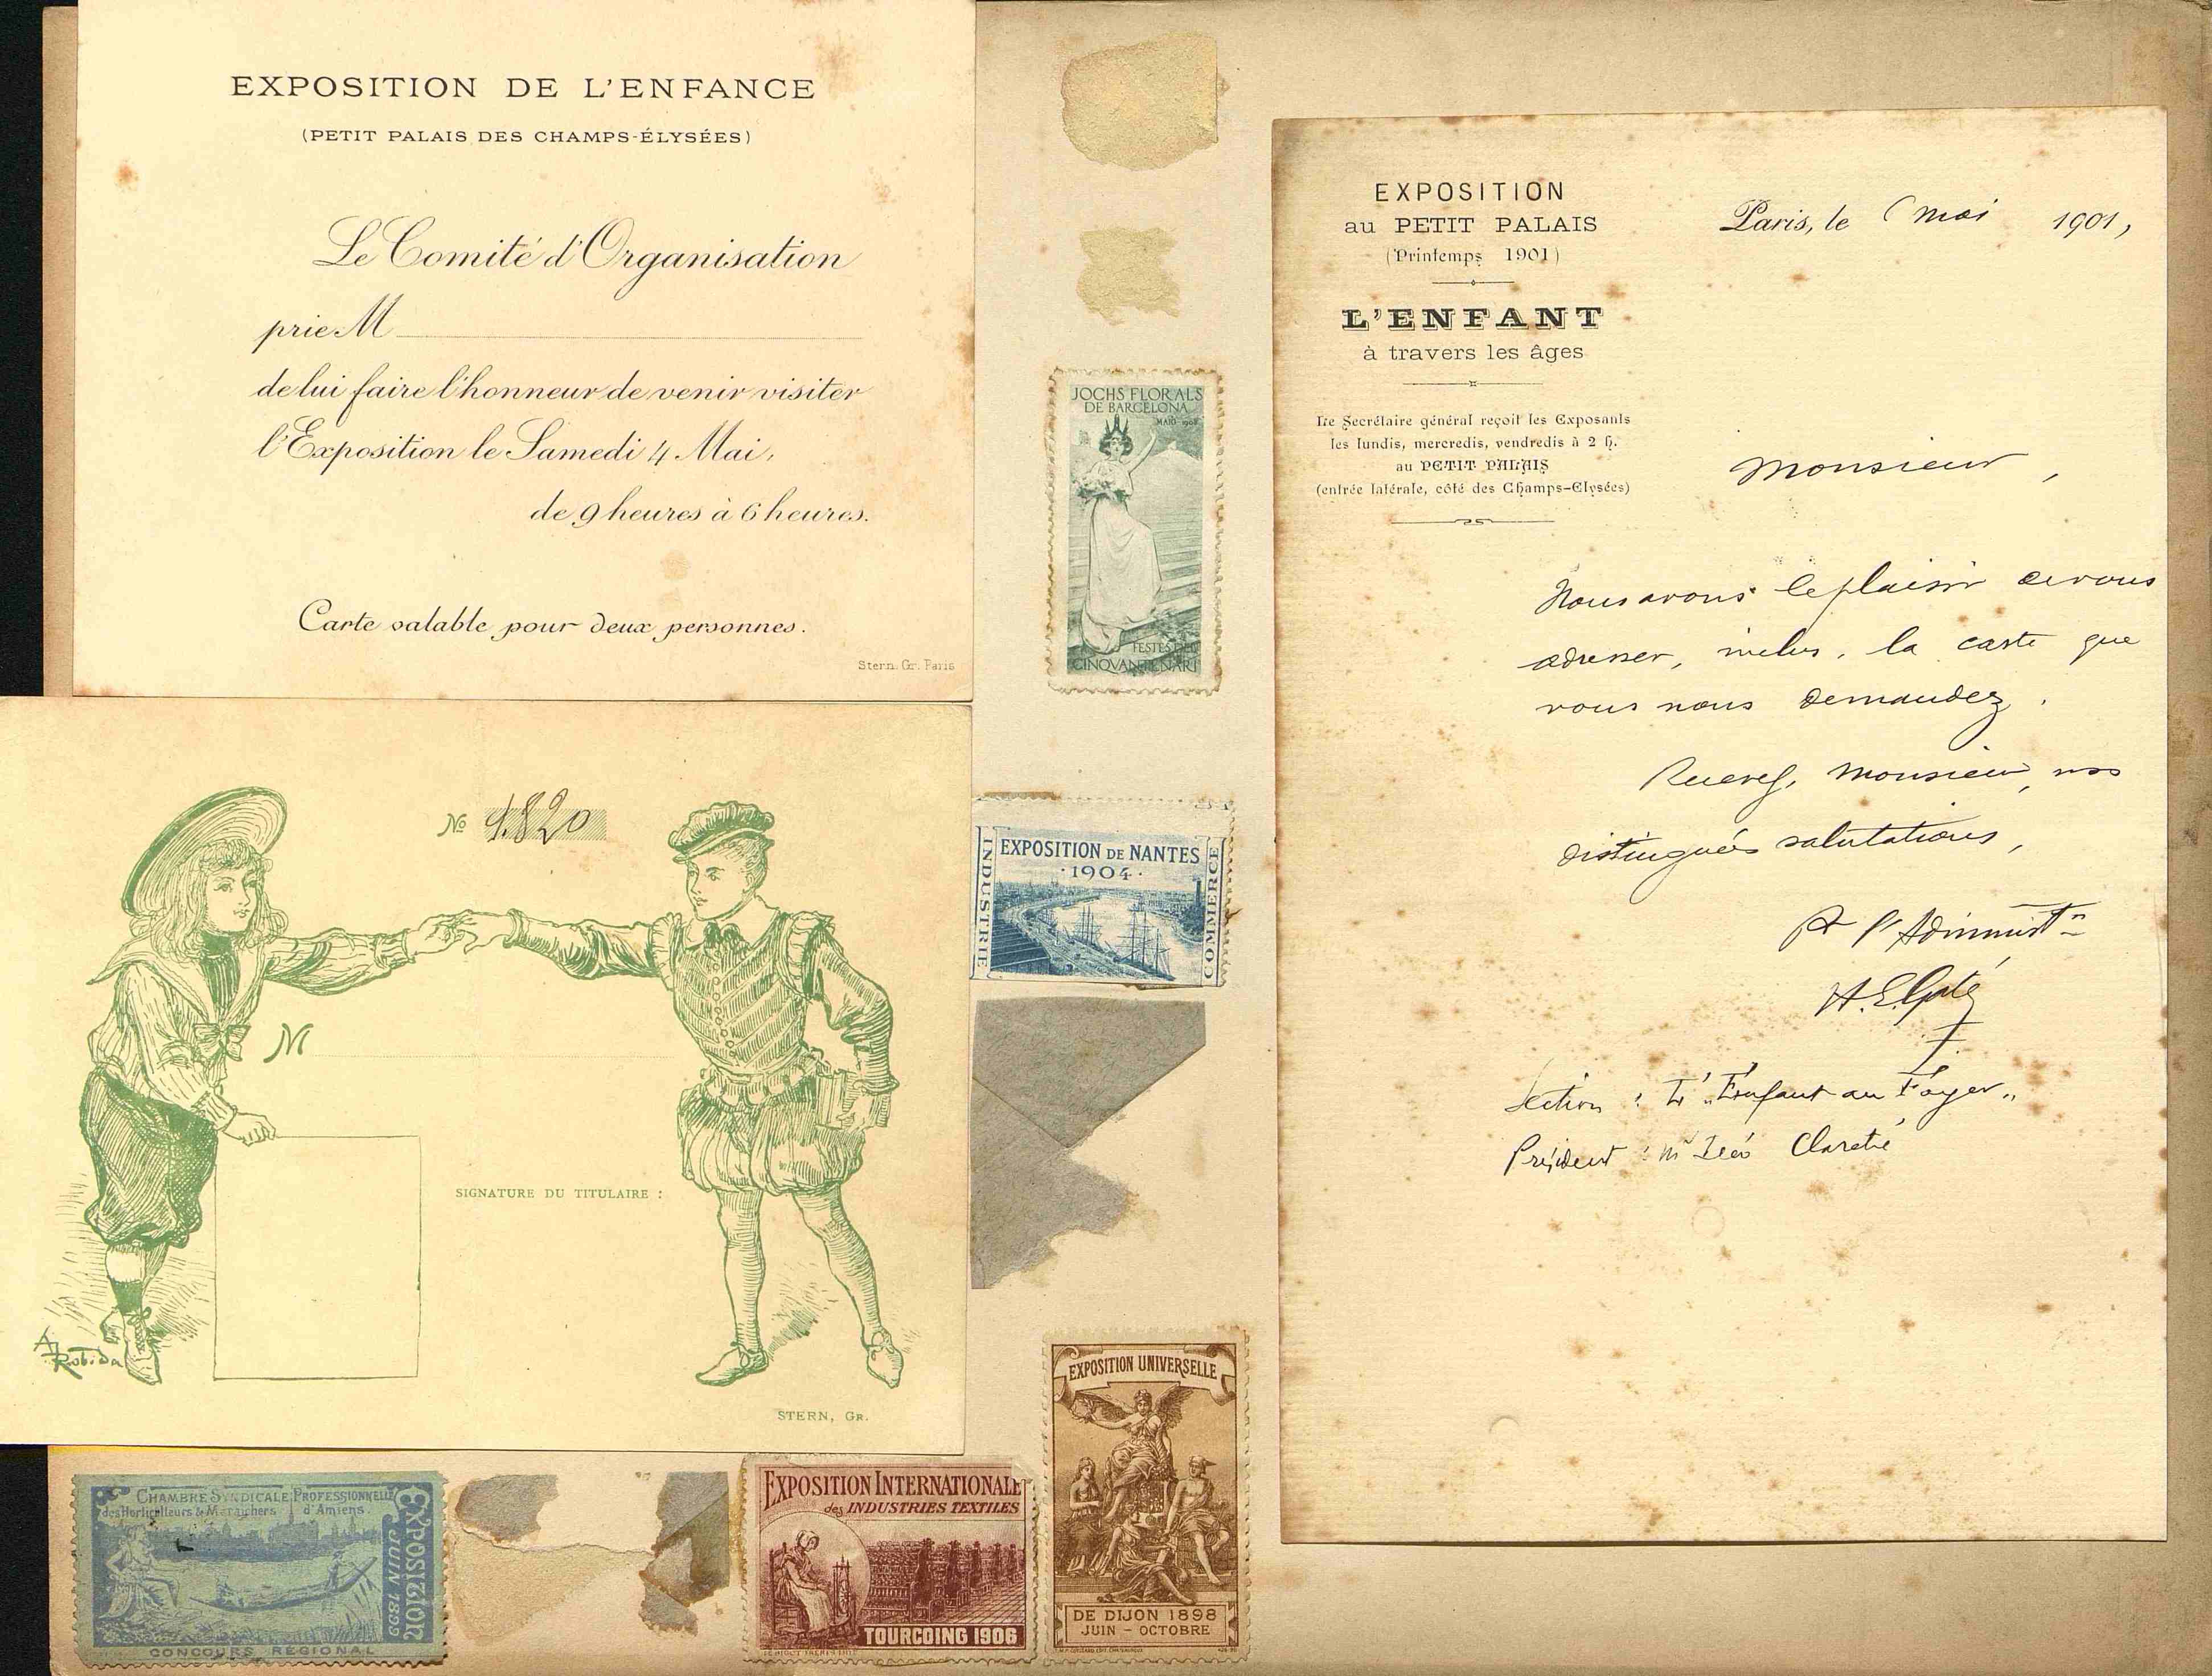 EXPOSITION DE L'ENFANCE
(PETIT PALAIS DES CHAMPS-ÉLYSÉES)
Le Comité d'Organisation
prie M
de lui faire l'honneur de venir visiter
l'Exposition le Samedi 4 Mai,
de 9 heures à 6 heures.
Carte valable pour deux personnes.
Stern. Gr. Paris
No 1.820
M
SIGNATURE DU TITULAIRE :
A Robida
STERN, Gr.
CHAMBRE SYNDICALE PROFESSIONNELLE
des Horticulteurs & Maraichers d'Amiens.
EXPOSITION
JUIN 1899
CONCOURS RÉGIONAL
EXPOSITION INTERNATIONALE
des INDUSTRIES TEXTILES
TOURCOING 1906
JOCHS FLORALS
DE BARCELONA
MAIG 1908
FESTES DEL
CINQVANTENARI
EXPOSITION DE NANTES
·1904·
INDUSTRIE
COMMERCE
EXPOSITION UNIVERSELLE
DE DIJON 1898
JUIN - OCTOBRE
EXPOSITION
au PETIT PALAIS
(Printemps 1901)
L'ENFANT
à travers les âges
Le Secrétaire général reçoit les Exposants
les lundis, mercredis, vendredis à 2 h.
au PETIT PALAIS
(entrée latérale, côté des Champs-Elysées)
Paris, le mai 1901,
Monsieur,
Nous avons le plaisir de vous
adresser, inclus, la carte que
vous nous demandez.
Recevez, Monsieur, nos
distinguées salutations,
Pr l'Administon
Section : L'"Enfant au Foyer"
Président : Mr Léo Claretie